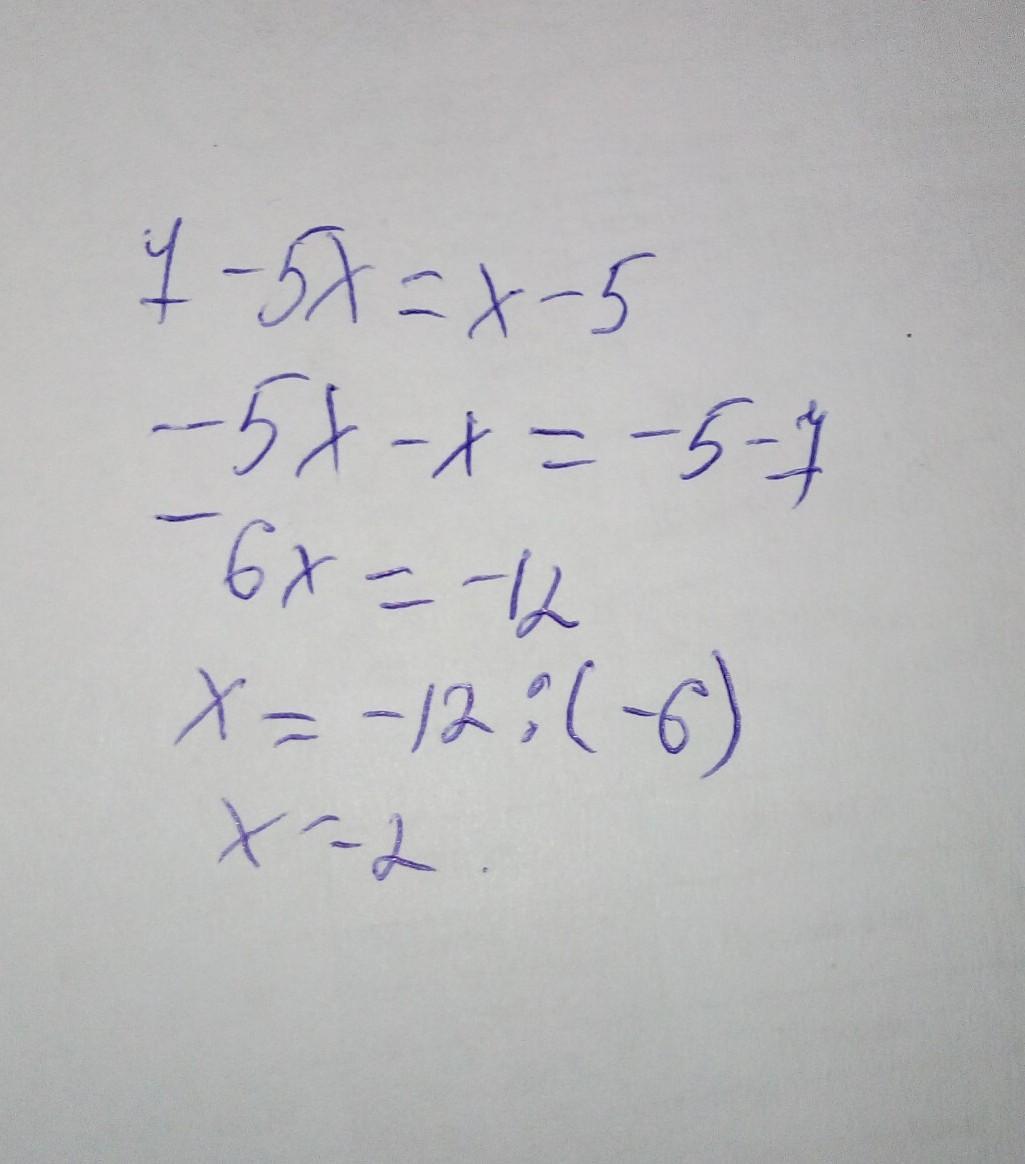 7-5x=x-5
-5x-x=-5-7
-6x=-12
x=-12:(-6)
x=2.